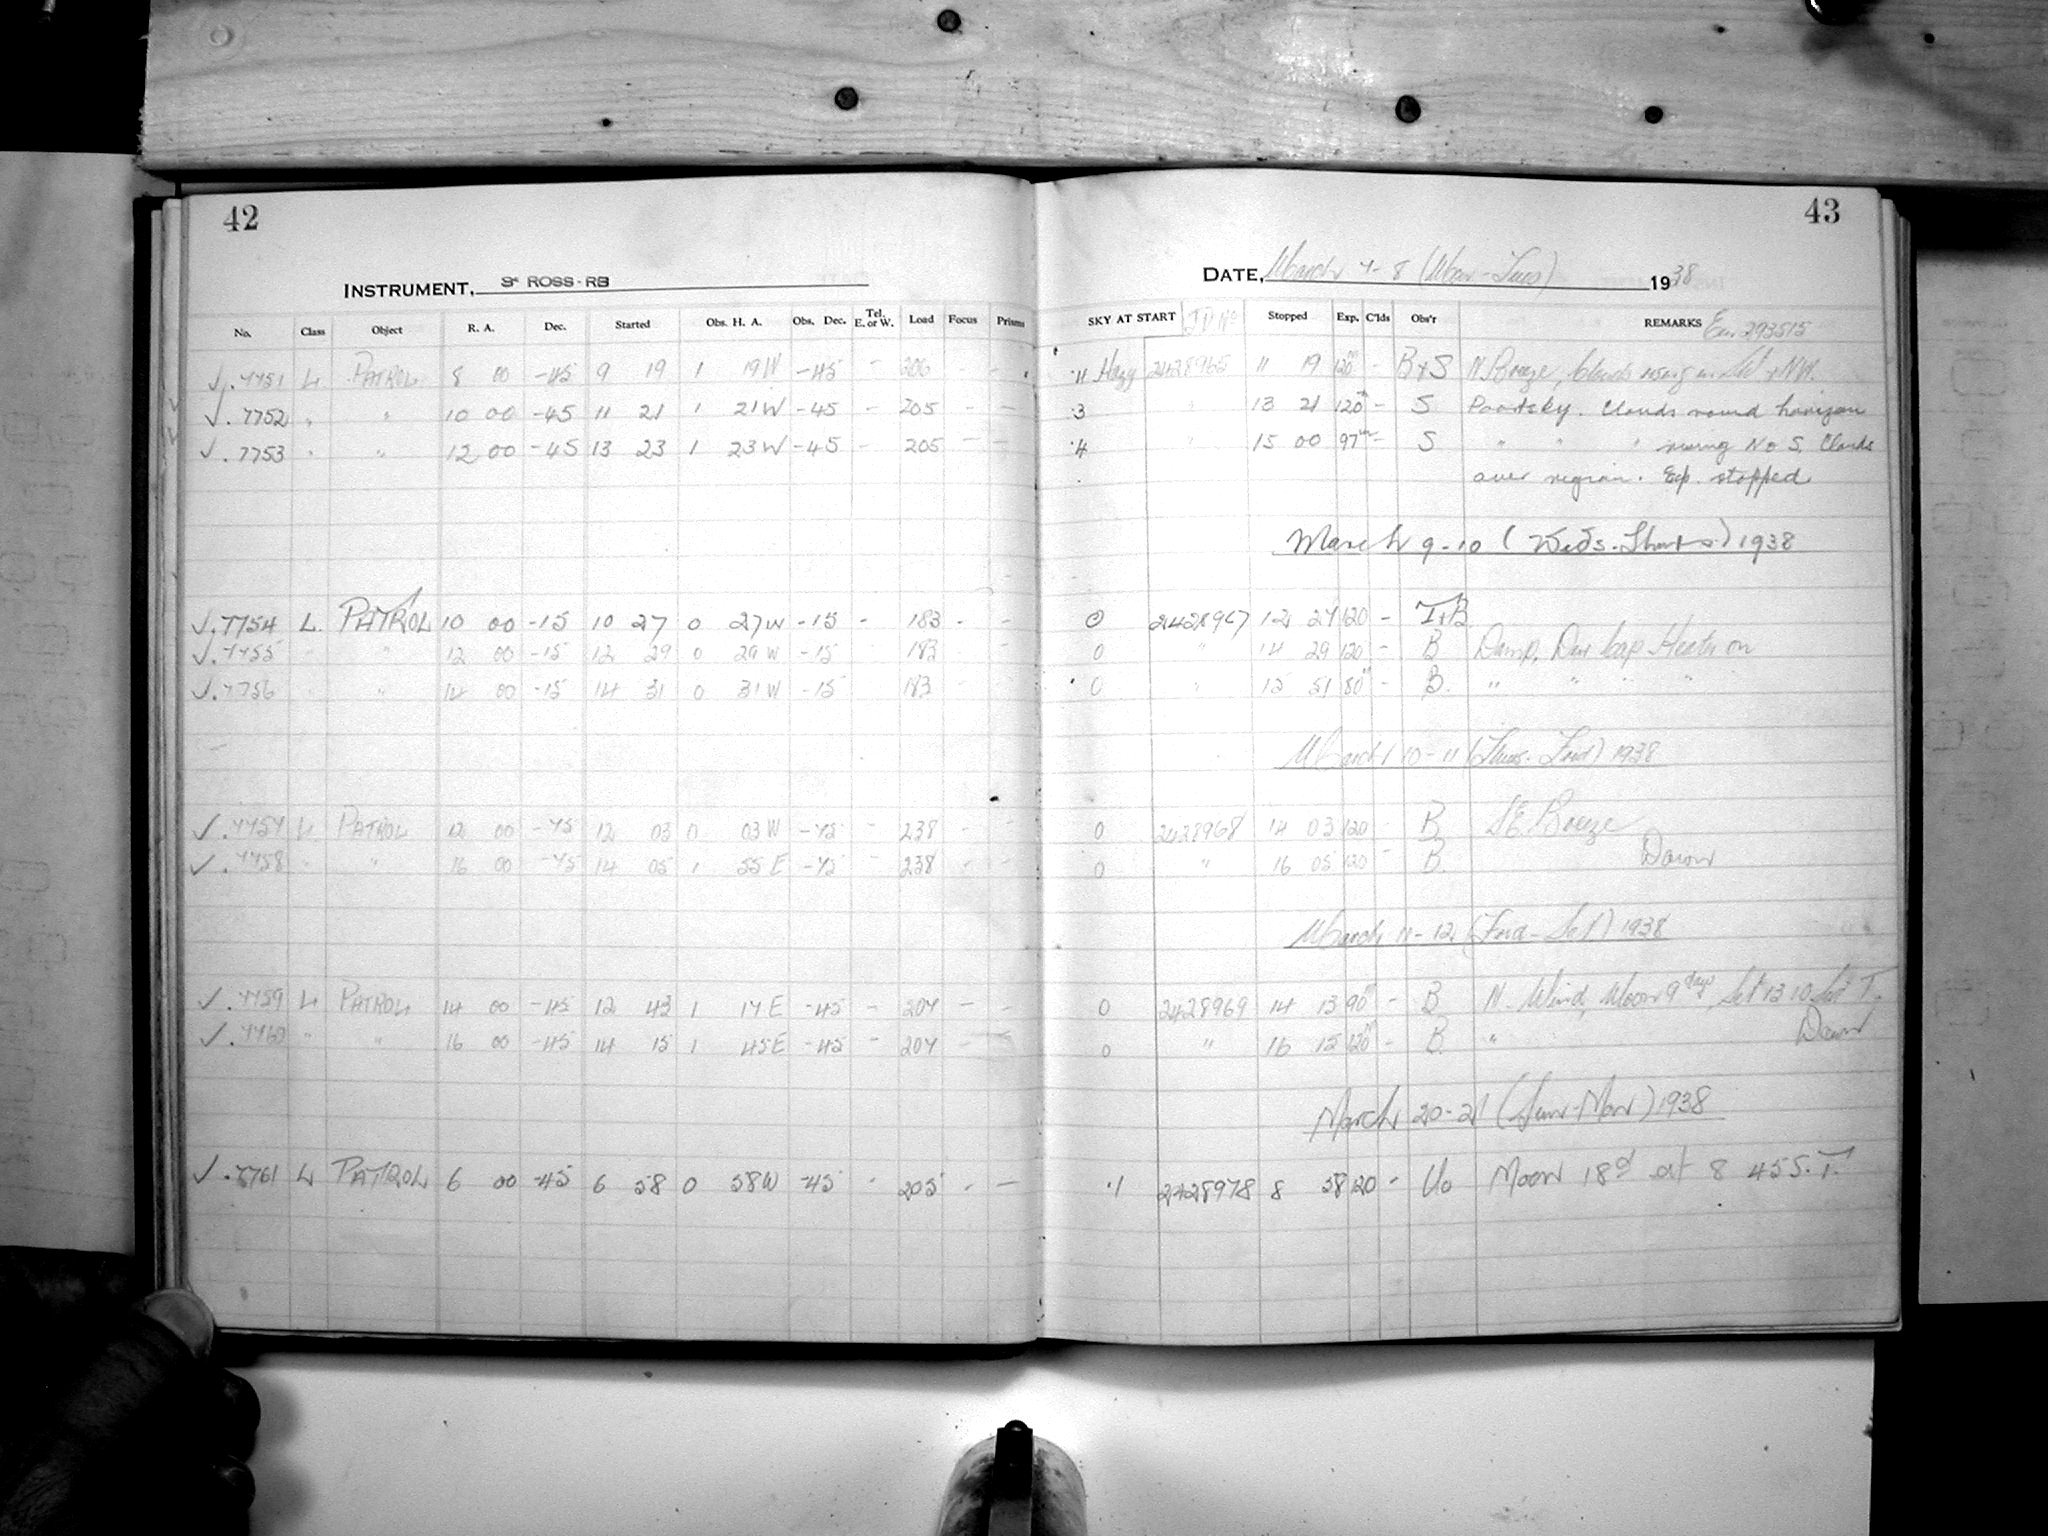 42
INSTRUMENT, 3" ROSS-RB
No. Class Object R. A. Dec. Started Obs. H. A. Obs. Dec. Tel. E. or W. Load Focus Prisms
√.7751 L PATROL 8 00 -45 9 19 1 19W -45 - 206 - -
√.7752 " " 10 00 -45 11 21 1 21W -45 - 205 - -
√.7753 " " 12 00 -45 13 23 1 23W -45 - 205 - -
√.7754 L. PATROL 10 00 -15 10 27 0 27W -15 - 183 - -
√.7755 " " 12 00 -15 12 29 0 29W -15 - 183 - -
√.7756 " " 14 00 -15 14 31 0 31W -15 183 - -
√.7757 L PATROL 12 00 -75 12 03 0 03W -75 - 238 - -
√.7758 " " 16 00 -75 14 05 1 55E -75 - 238 - -
√.7759 L PATROL 14 00 -45 12 43 1 17E -45 - 207 - -
√.7760 " " 16 00 -45 14 15 1 45E -45 - 207 - -
√.7761 L PATROL 6 00 -45 6 58 0 58W -45 - 205 - -
43
DATE, March 7-8 (Mon-Tues) 1938
SKY AT START J.D. No Stopped Exp. C'lds Obs'r REMARKS Em. 293515
.11 Hazy 2428965 11 19 120m - B+S N Breeze, Clouds rising in W + NW.
.3 " 13 21 120m - S Poor sky. Clouds round horizon
.4 " 15 00 97m - S " " " rising N & S. Clouds
over region. Exp. stopped.
March 9-10 (Weds.-Thurs.) 1938
0 2428967 12 27 120 - T+B
0 " 14 29 120 - B. Damp, Dew Cap Heath on
0 " 15 51 80m - B. " " " " "
March 10-11 (Thurs-Frid) 1938
0 2428968 14 03 120 - B S.E. Breeze
0 " 16 05 120 - B. Dawn
March 11-12 (Frid-Sat) 1938
0 2428969 14 13 90m - B N. Wind, Moon 9 days, Set 13 10 S.T.
0 " 16 15 120m - B. " Dawn
March 20-21 (Sun-Mon) 1938
.1 2428978 8 58 120 - Uo Moon 18d at 8 45 S.T.